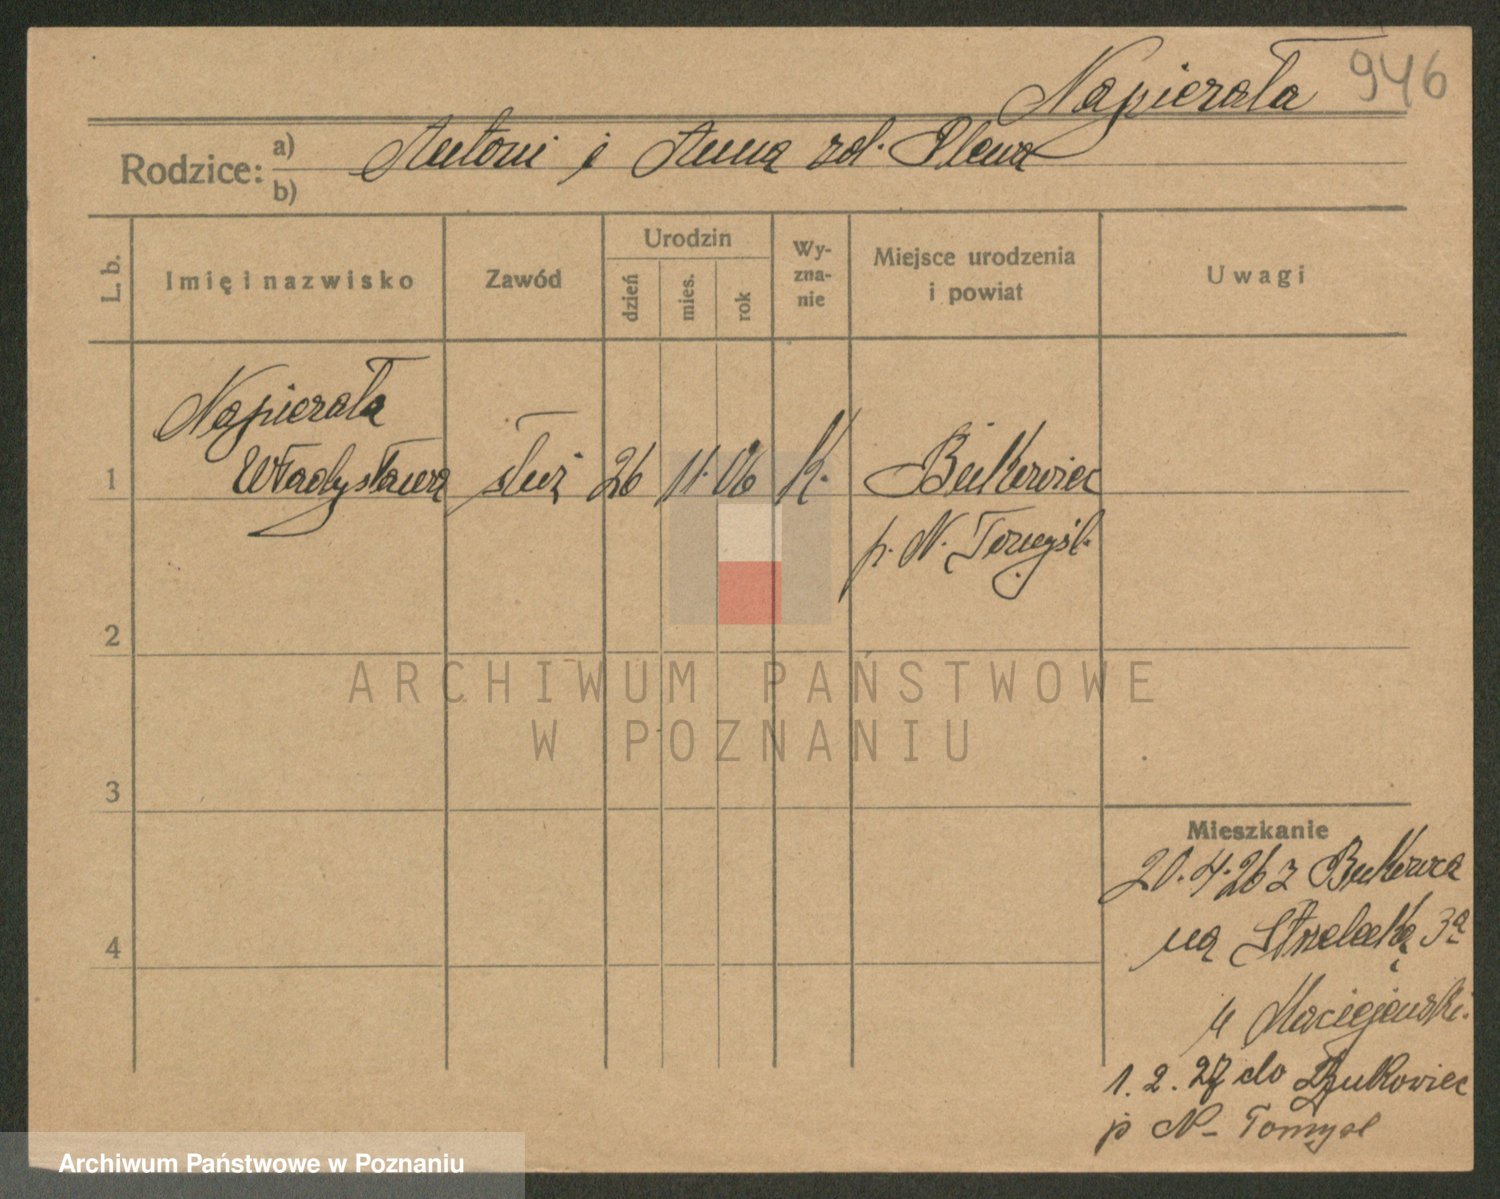 Napierała 946
Rodzice: a) b) Antoni i Anna zd. Plewa
L. b.
Imię i nazwisko
Zawód
Urodzin
dzień
mies.
rok
Wy-
zna-
nie
Miejsce urodzenia
i powiat
Uwagi
Napierała
1 Władysława służ 26 11. 06 K. Bukowiec
p. N. Tomyśl.
2
ARCHIWUM PAŃSTWOWE
W POZNANIU
3
Mieszkanie
20.4.26 z Bukowca
na Strzelecką 3a
4
u Maciejewski.
1. 2. 27 do Bukowiec
p N- Tomysl
Archiwum Państwowe w Poznaniu